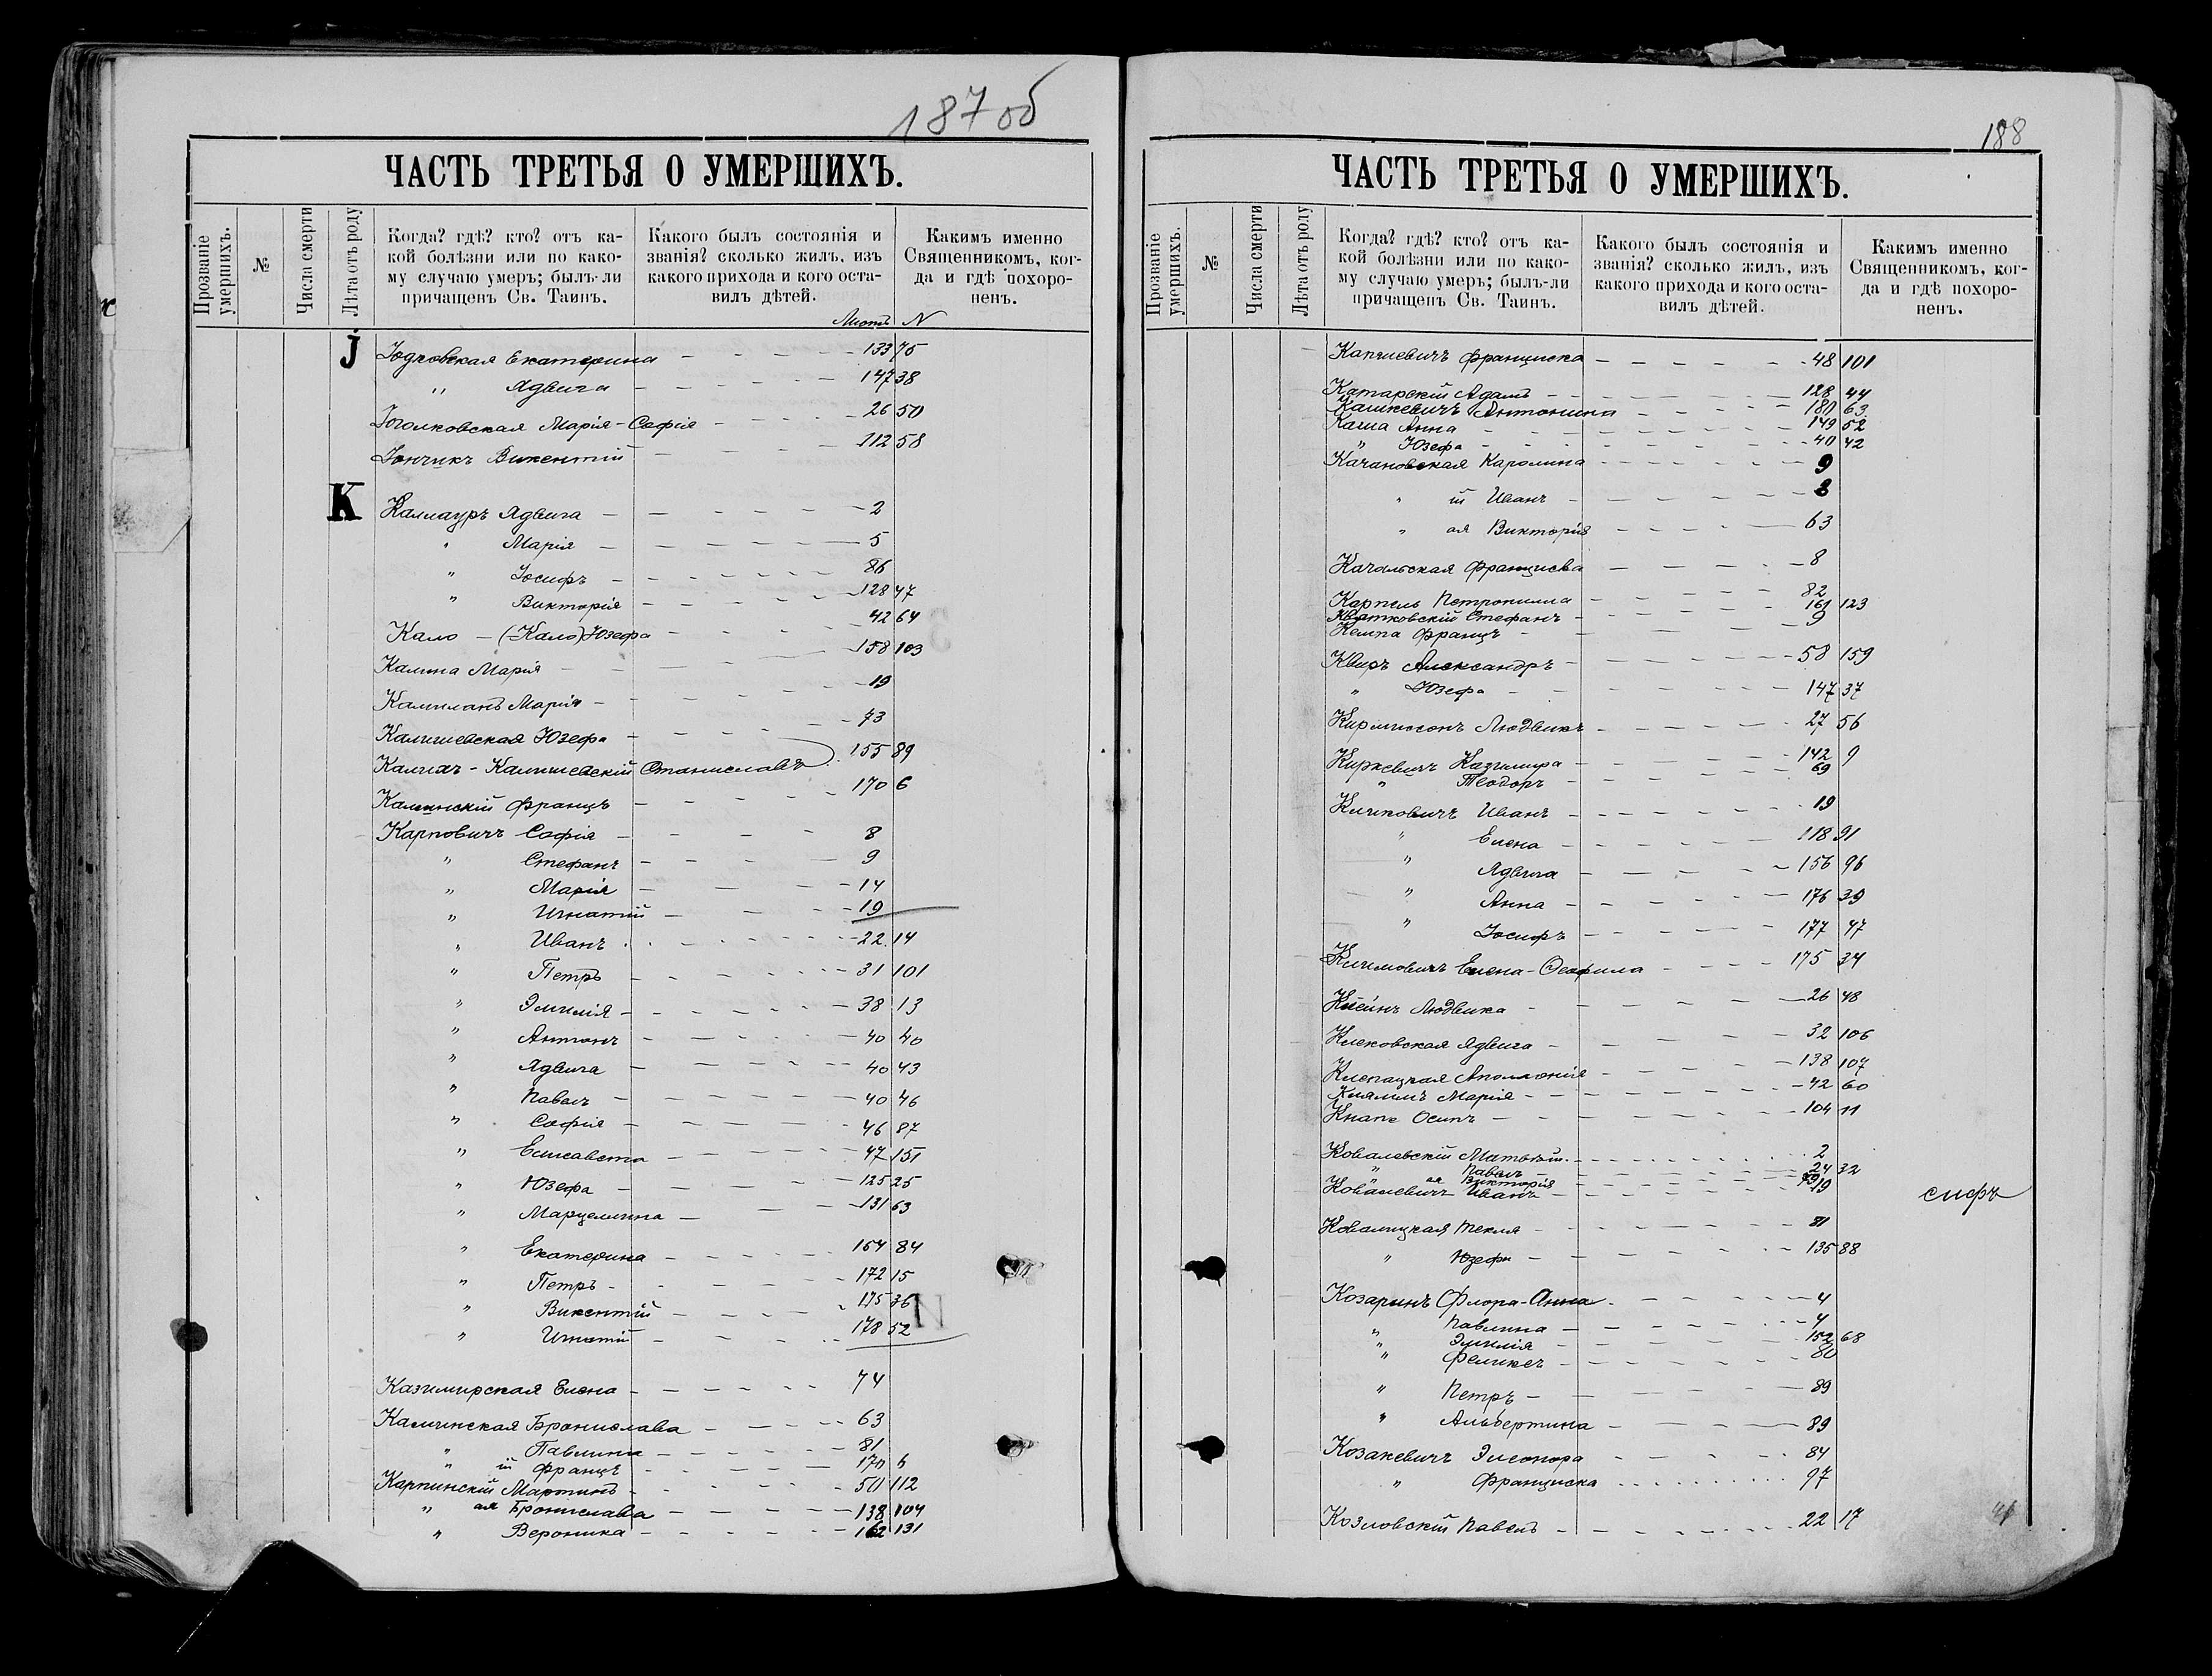 187 об
ЧАСТЬ ТРЕТЬЯ О УМЕРШИХЪ.
Прозваніе умершихъ.
№
Числа смерти
Лѣта отъ роду
Когда? гдѣ? кто? отъ ка-
кой болѣзни или по како-
му случаю умеръ; былъ-ли
причащенъ Св. Таинъ.
Какого былъ состоянія и
званія? сколько жилъ, изъ
какого прихода и кого оста-
вилъ дѣтей.
Какимъ именно
Священникомъ, ког-
да и гдѣ похоро-
ненъ.
Листъ N
J Іодчовская Екатерина 133 75
" Ядвига 147 38
Іоголковская Марія-Софія 26 50
Іончикъ Викентій 112 58
K Каллауръ Ядвига 2
" Марія 5
" Іосифъ 86
" Викторія 128 47
Кало - (Кало) Юзефа 42 64
Калина Марія 158 103
Марія 19
Юзефа 73
Станиславъ 155 89
Францъ 170 6
Карповичъ Софія 8
" Стефанъ 9
" Марія 14
" Игнатій 19
" Иванъ 22 14
" Петръ 31 101
" Эмилія 38 13
" Антонъ 40 40
" Ядвига 40 43
" Павелъ 40 46
" Софія 46 87
" Елисавета 47 151
" Юзефа 125 25
" Марцеллина 131 63
" Екатерина 154 84
" Петръ 172 15
" Викентій 175 36
" Игнатій 178 52
Казимирская Елена 74
Каминская Бронислава 63
" Павлина 81
" ій Францъ 170 6
Карпинскій Мартинъ 50 112
" ая Бронислава 138 104
" Вероника 162 131
188
ЧАСТЬ ТРЕТЬЯ О УМЕРШИХЪ.
Прозваніе умершихъ.
№
Числа смерти
Лѣта отъ роду
Когда? гдѣ? кто? отъ ка-
кой болѣзни или по како-
му случаю умеръ; былъ-ли
причащенъ Св. Таинъ.
Какого былъ состоянія и
званія? сколько жилъ, изъ
какого прихода и кого оста-
вилъ дѣтей.
Какимъ именно
Священникомъ, ког-
да и гдѣ похоро-
ненъ.
Франциска 48 101
Катарскій Адамъ 128 44
Кашкевичъ Антонина 180 63
Каша Анна 149 52
" Юзефа 40 42
Качановская Каролина 9
" ій Иванъ 8
" ая Викторія 63
Качальская Франциска 8
Карпель Петронилла 82
Квятковскій Стефанъ 161 123
Кемпа Францъ 9
Квиръ Александръ 58 159
" Юзефа 147 37
Людвикъ 27 56
Киркевичъ Казимира 142 9
" Теодоръ 69
Климовичъ Иванъ 19
" Елена 118 91
" Ядвига 156 96
" Анна 176 39
" Іосифъ 177 47
Климовичъ Елена-Теофила 175 34
Клейнъ Людвика 26 48
Клековская Ядвига 32 106
Клепацкая Аполлонія 138 107
Марія 42 60
Кнапе Осипъ 104 11
Ковалевскій Матвѣй 2
" Павелъ 24 32
" ая Викторія
Ковалевичъ Иванъ 19
сифъ
Ковалицкая Текля 81
" Юзефа 135 88
Козаринъ Флора-Анна 4
" Павлина 4
" Эмилія 152 68
" Феликсъ 80
" Петръ 89
" Альбертина 89
Козакевичъ Элеонора 84
" Франциска 97
Козловскій Павелъ 22 17